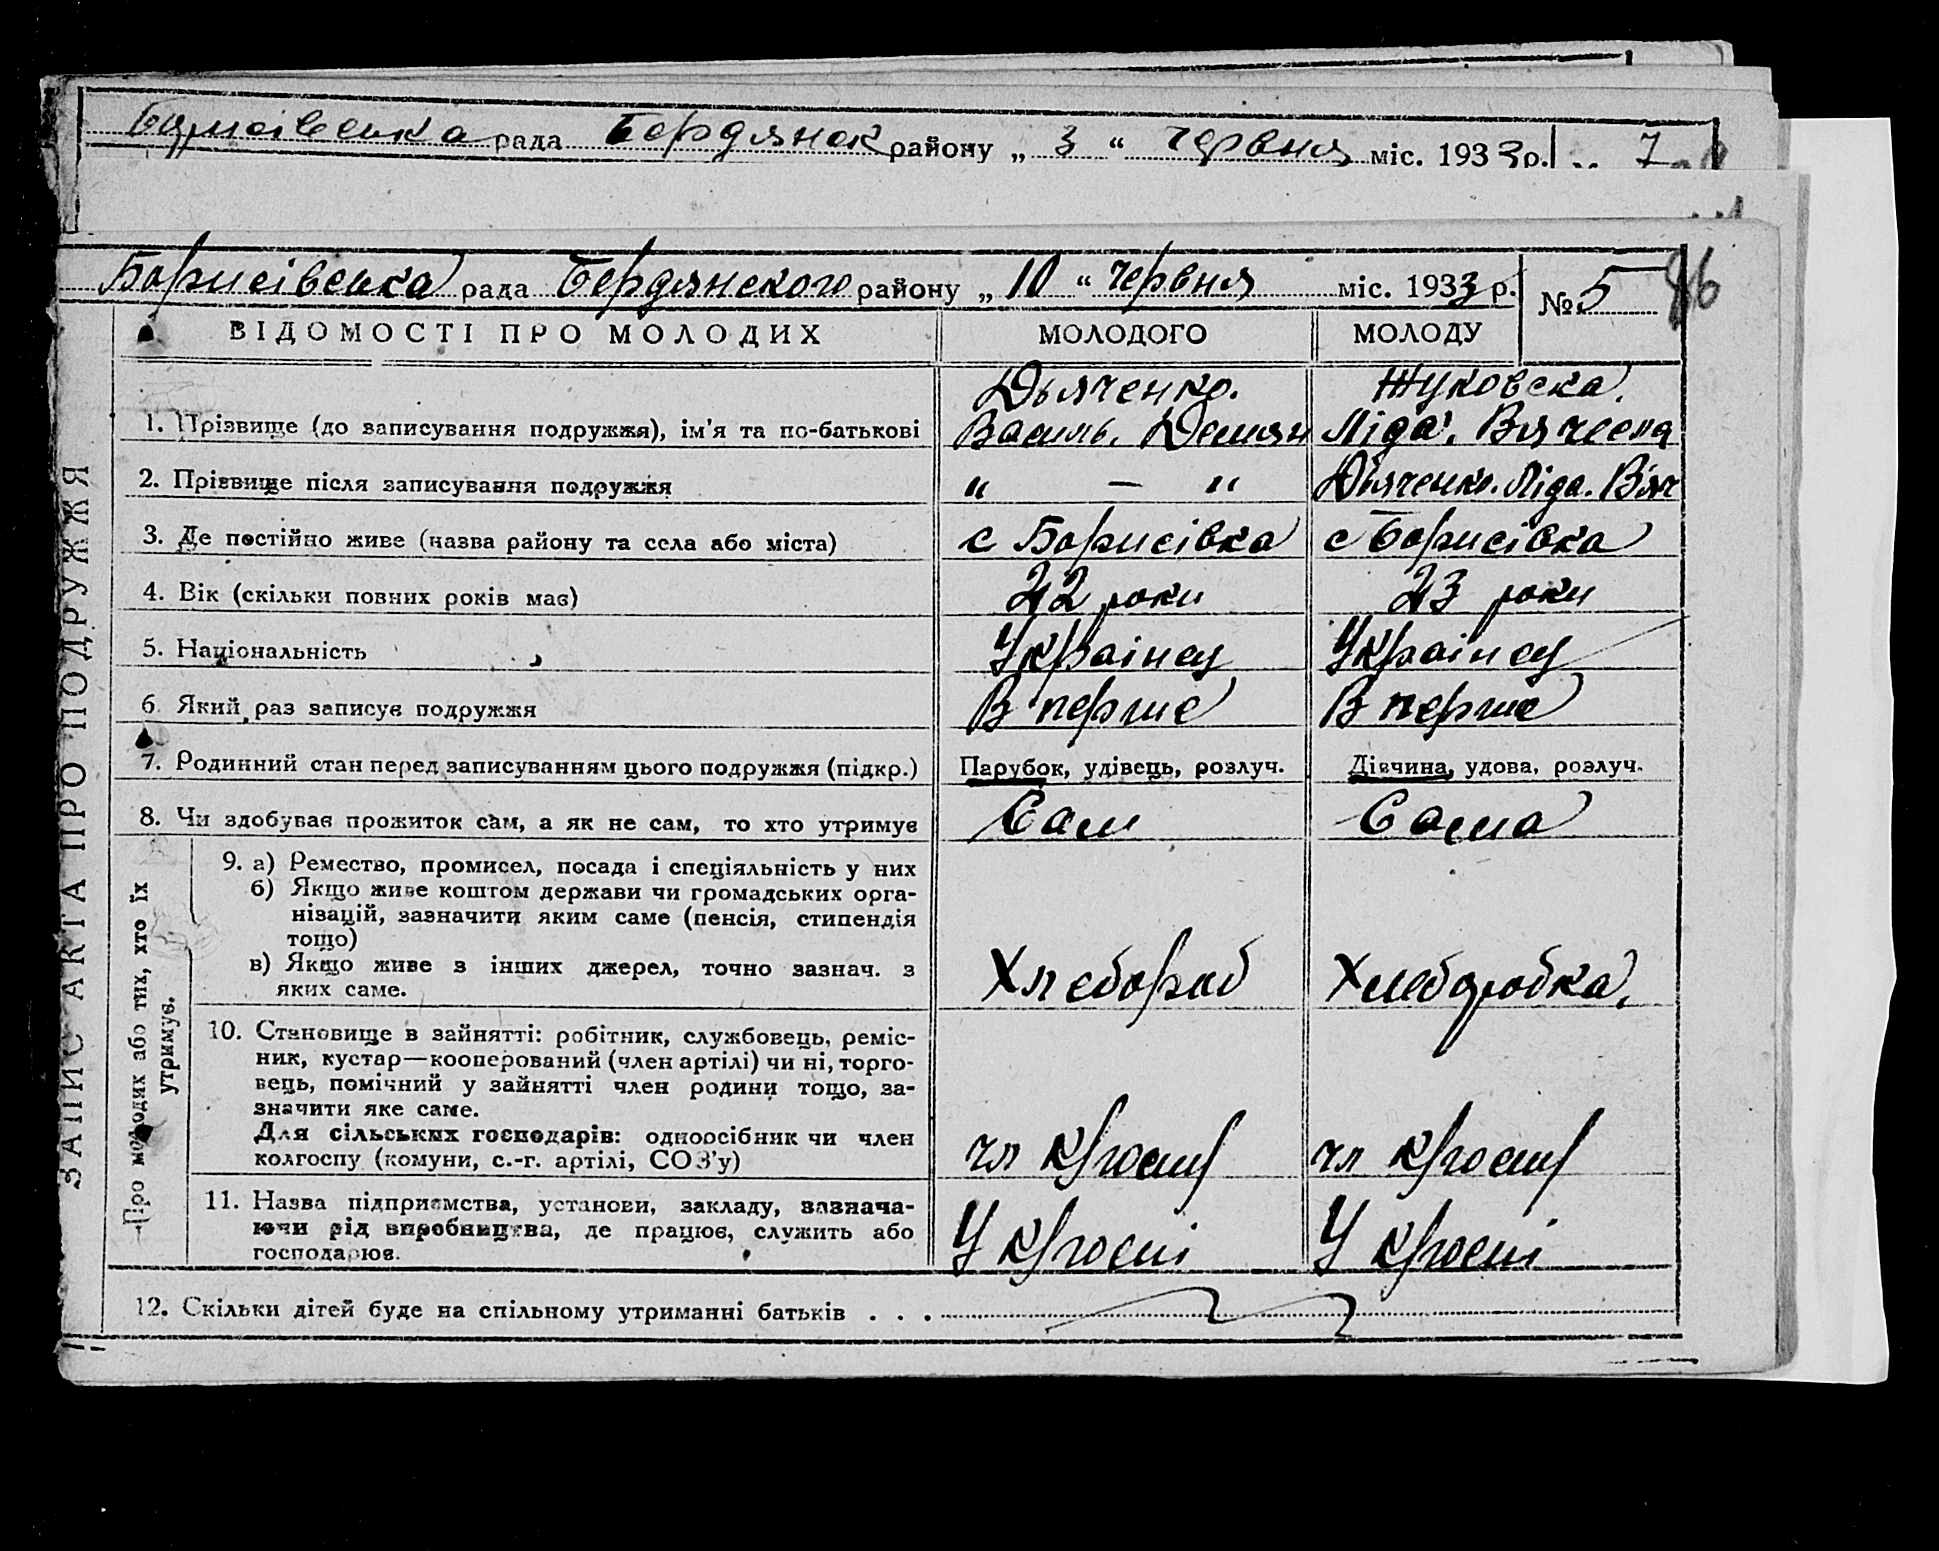 Борисівська рада Бердянск району „ 3 “ червня міс. 1933 р. 7
Борисівська рада Бердянского району „ 10 “ червня міс. 1933 р. № 5 86
ВІДОМОСТІ ПРО МОЛОДИХ МОЛОДОГО МОЛОДУ
ЗАПИС АКТА ПРО ПОДРУЖЖЯ
Дьяченко. Жуковска.
1. Прізвище (до записування подружжя), ім'я та по-батькові Василь. Демян Ліда. Вячесла
2. Прізвище після записування подружжя " — " Дьяченко. Ліда. Вяч
3. Де постійно живе (назва району та села або міста) с Борисівка с Борисівка
4. Вік (скільки повних років має) 22 роки 23 роки
5. Національність Українец Українец
6. Який раз записує подружжя В перше В перше
7. Родинний стан перед записуванням цього подружжя (підкр.) Парубок, удівець, розлуч. Дівчина, удова, розлуч.
8. Чи здобував прожиток сам, а як не сам, то хто утримує Сам Сама
Про молодих або тих, хто їх
утримує.
9. а) Ремество, промисел, посада і спеціяльність у них
б) Якщо живе коштом держави чи громадських орга-
нізацій, зазначити яким саме (пенсія, стипендія
тощо)
в) Якщо живе з інших джерел, точно зазнач. з
яких саме. Хлебороб Хлеборобка,
10. Становище в зайнятті: робітник, службовець, реміс-
ник, кустар—кооперований (член артілі) чи ні, торго-
вець, помічний у зайнятті член родини тощо, за-
значити яке саме.
Для сільських господарів: одноосібник чи член
колгоспу (комуни, с.-г. артілі, СОЗ'у) чл чл
11. Назва підприємства, установи, закладу, зазнача-
ючи рід виробництва, де працює, служить або
господарює. У У
12. Скільки дітей буде на спільному утриманні батьків . . .